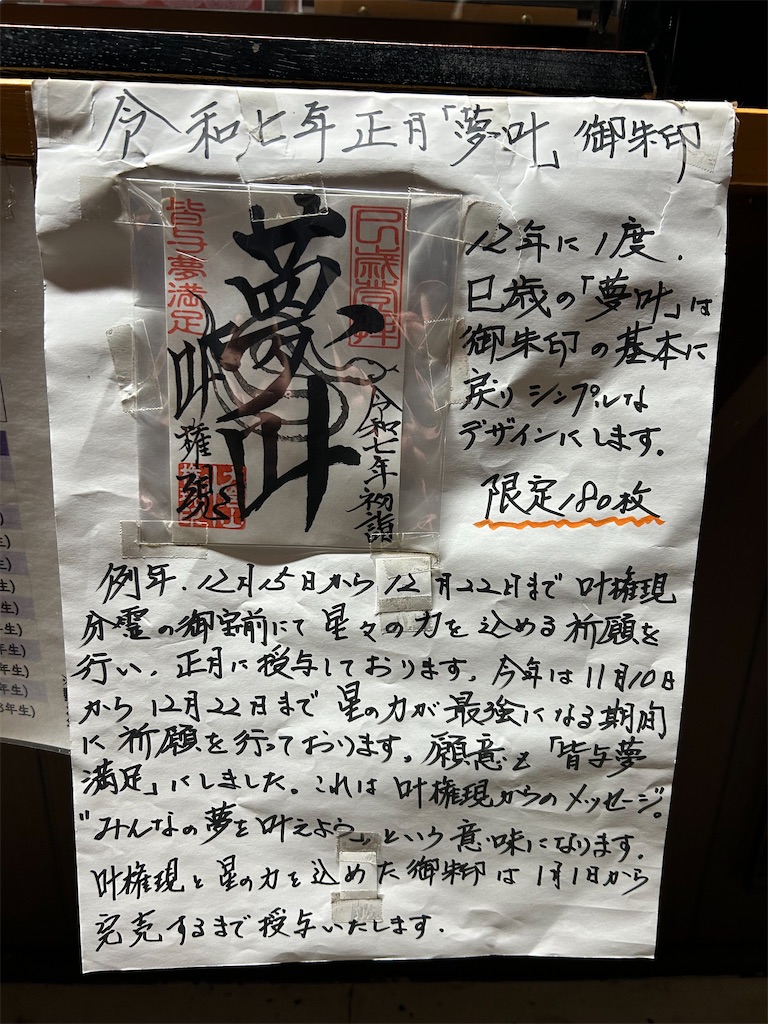 令和七年正月「夢叶」御朱印
巳歳堂拝
夢叶
皆与夢満足
叶権現
令和七年初詣
12年に1度、
巳歳の「夢叶」は
御朱印の基本に
戻りシンプルな
デザインにします。
限定180枚
例年、12月15日から12月22日まで叶権現
分霊の御宝前にて星々の力を込める祈願を
行い、正月に授与しております。今年は11月10日
から12月22日まで星の力が最強になる期間
に祈願を行っております。願意も「皆与夢
満足」にしました。これは叶権現からのメッセージ。
"みんなの夢を叶えよう"という意味になります。
叶権現と星の力を込めた御朱印は1月1日から
完売するまで授与いたします。
年生)
年生)
年生)
3年生)